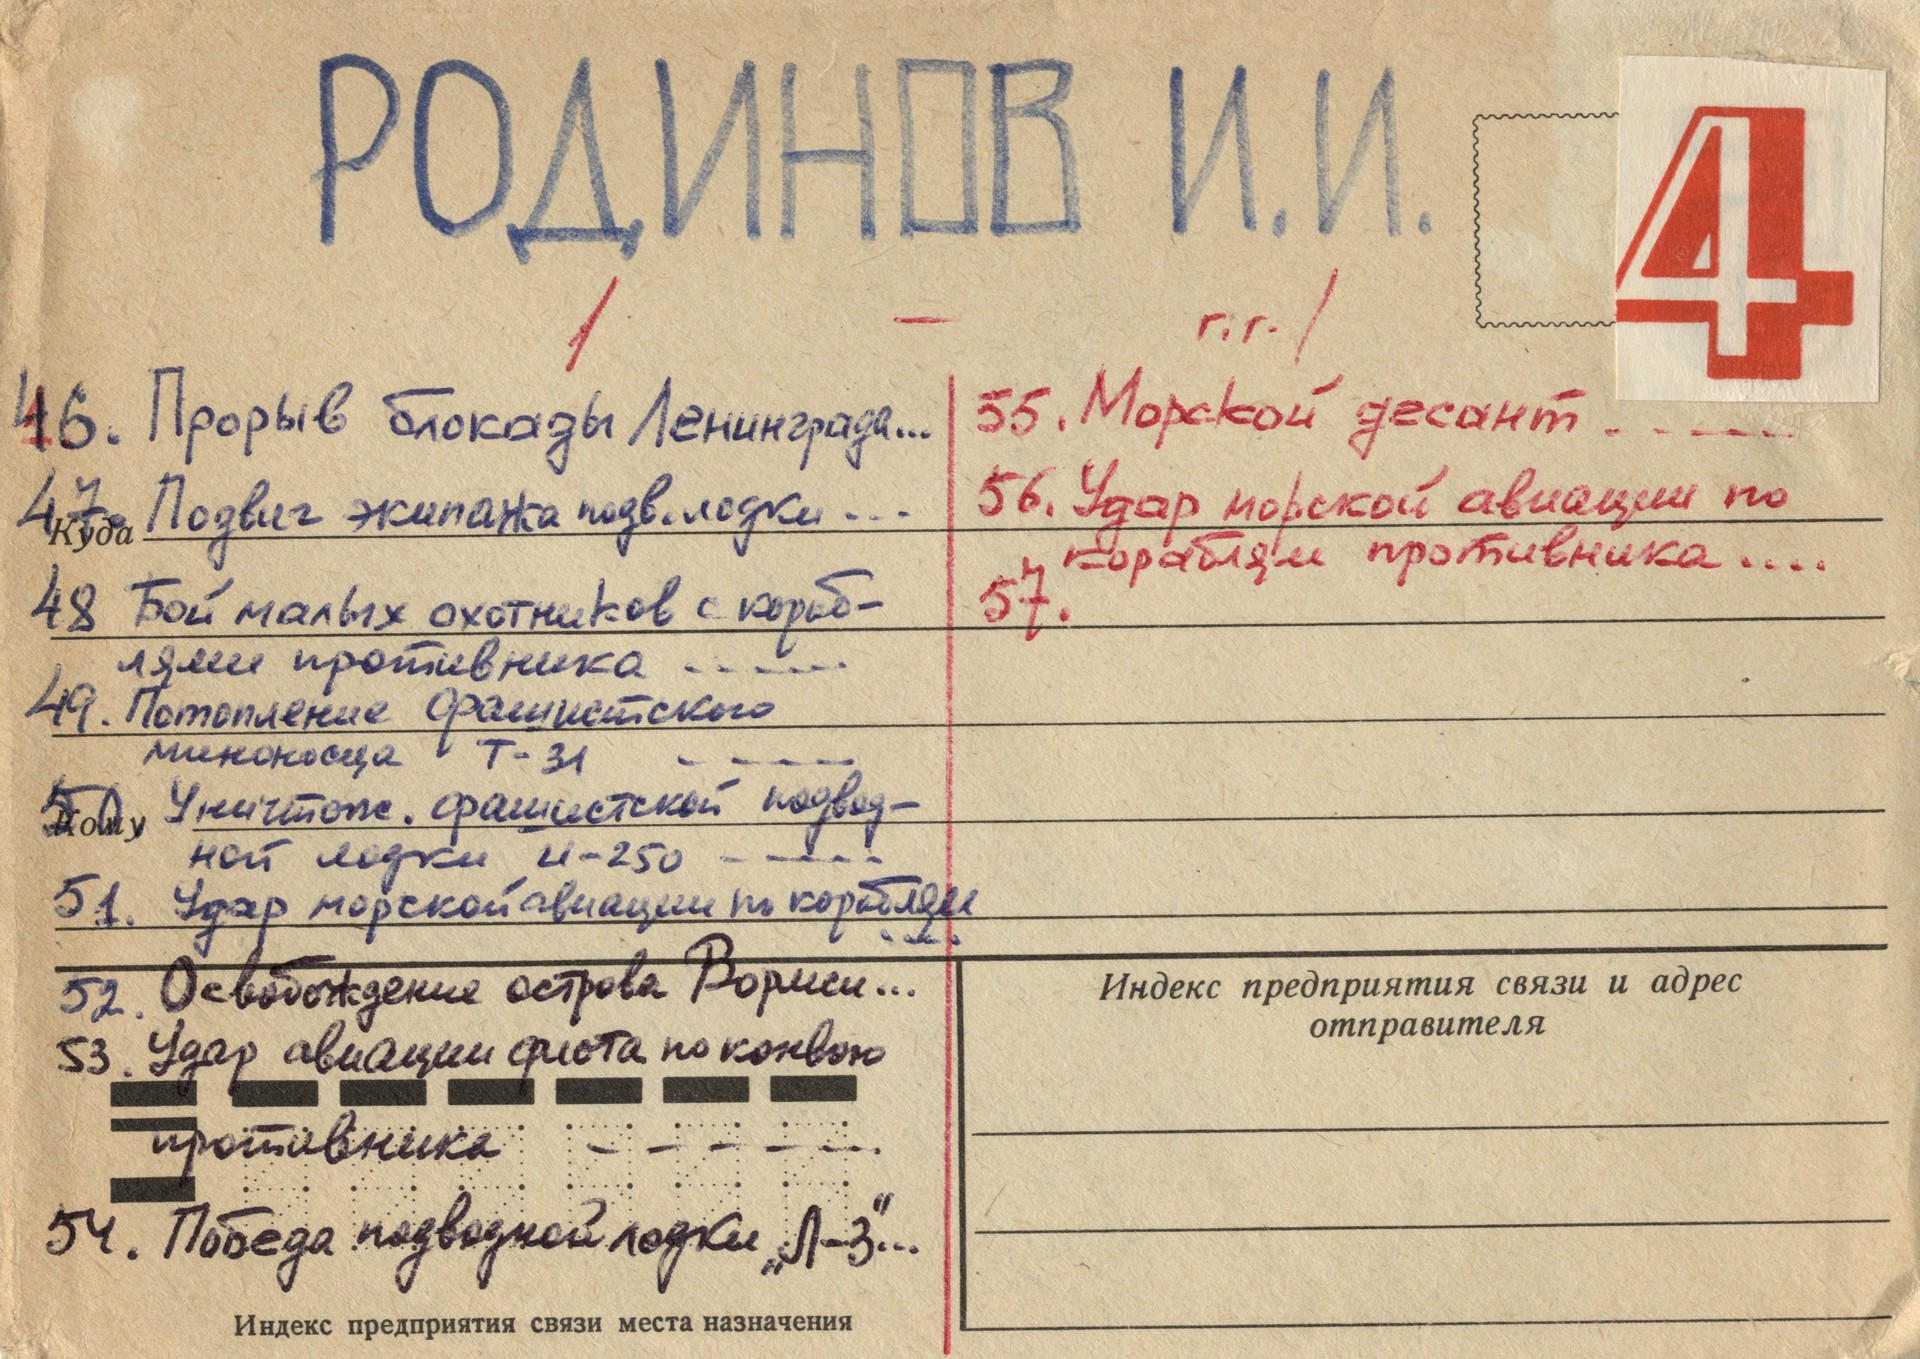 РОДИНОВ И.И.
4
/ – г.г. /
46. Прорыв блокады Ленинграда...
47. Подвиг экипажа подв. лодки ---
Куда
48 Бой малых охотников с кораб-
лями противника -----
49. Потопление фашистского
миноносца Т-31 -----
50 Уничтож. фашистской подвод-
Кому
ной лодки U-250 -----
51. Удар морской авиации по кораблям
...
52. Освобождение острова Вормси...
53. Удар авиации флота по конвою
противника ------
54. Победа подводной лодки „Л-3"...
Индекс предприятия связи места назначения
55. Морской десант -----
56. Удар морской авиации по
кораблям противника ....
57.
Индекс предприятия связи и адрес
отправителя